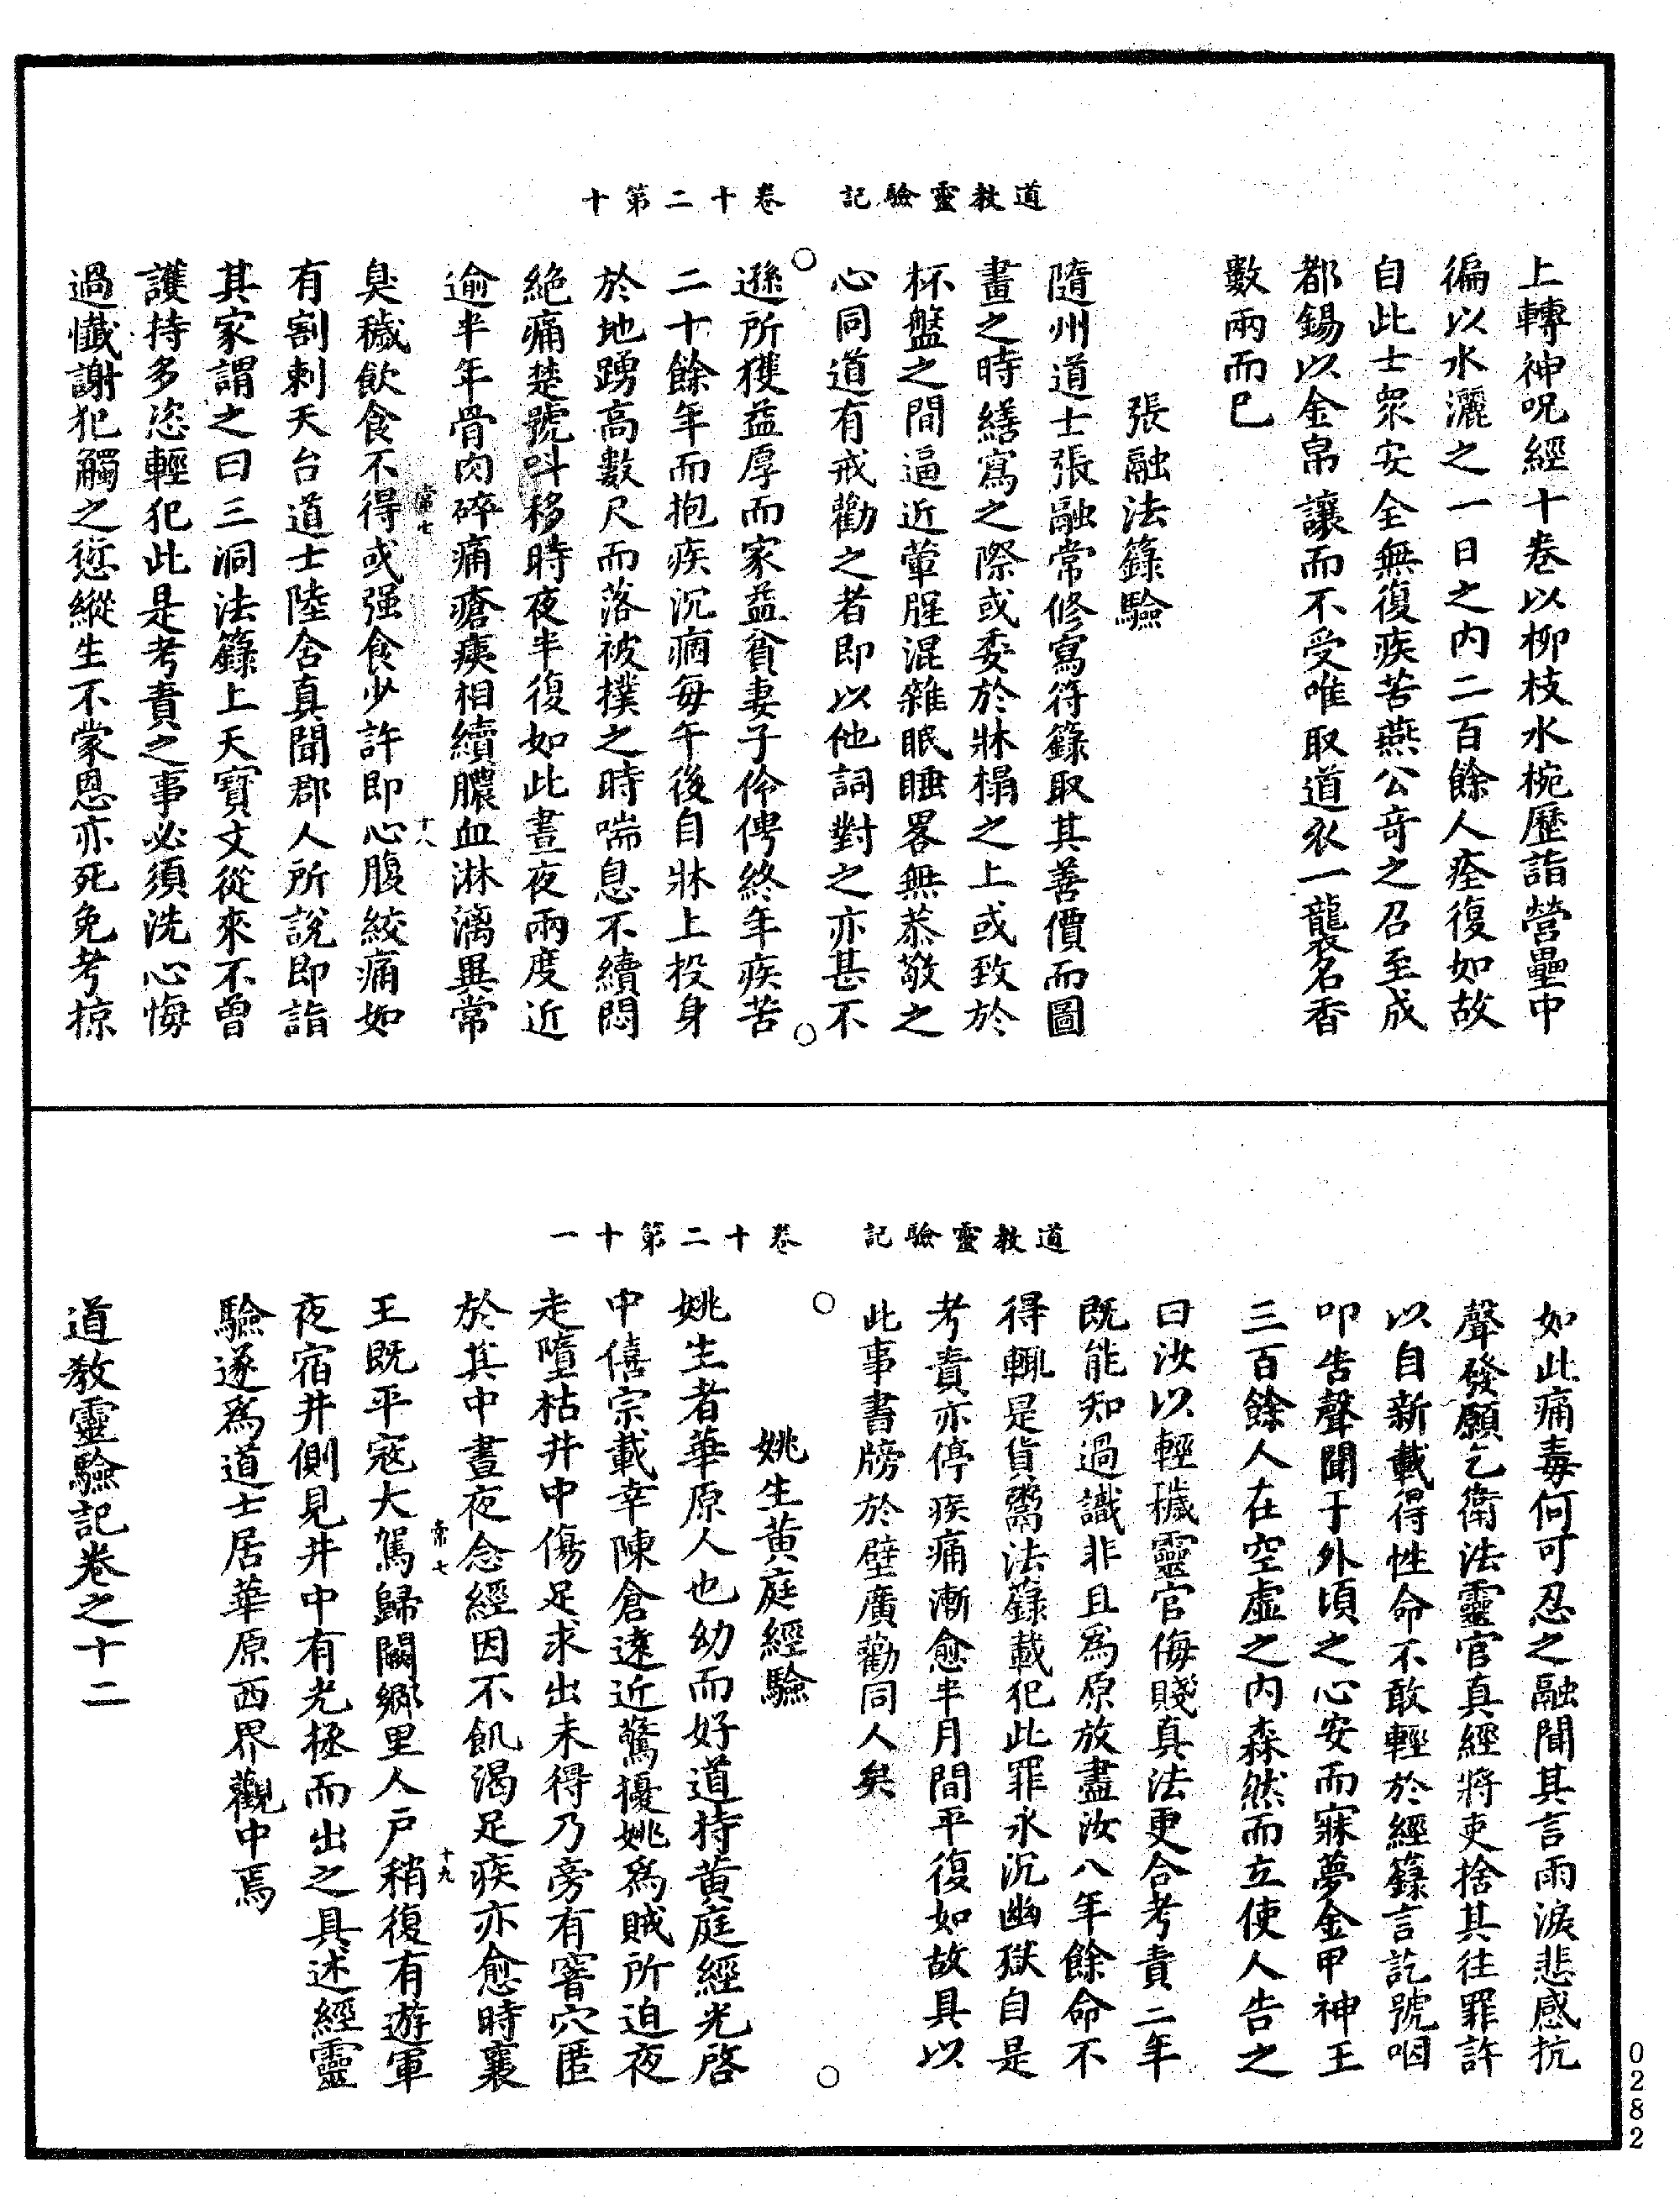 道教靈驗記　卷十二第十
上轉神呪經十卷以柳枝水椀歷詣營壘中
徧以水灑之一日之內二百餘人痊復如故
自此士衆安全無復疾苦燕公奇之召至成
都錫以金帛讓而不受唯取道衣一襲名香
數兩而已
張融法籙驗
隨州道士張融常修寫符籙取其善價而圖
畫之時繕寫之際或委於牀榻之上或致於
杯盤之間逼近葷腥混雜眠睡畧無恭敬之
心同道有戒勸之者即以他詞對之亦甚不
遜所獲益厚而家益貧妻子伶俜終年疾苦
二十餘年而抱疾沉痼每午後自牀上投身
於地踴高數尺而落被撲之時喘息不續悶
絶痛楚號呌移時夜半復如此晝夜兩度近
逾半年骨肉碎痛瘡痍相續膿血淋漓異常
常七
十八
臭穢飲食不得或强食少許即心腹絞痛如
有割刺天台道士陸含真聞郡人所說即詣
其家謂之曰三洞法籙上天寶文從來不曾
護持多恣輕犯此是考責之事必須洗心悔
過懺謝犯觸之愆縱生不蒙恩亦死免考掠
道教靈驗記　卷十二第十一
如此痛毒何可忍之融聞其言雨淚悲感抗
聲發願乞衛法靈官真經將吏捨其往罪許
以自新載得性命不敢輕於經籙言訖號咽
叩告聲聞于外頃之心安而寐夢金甲神王
三百餘人在空虛之內森然而立使人告之
曰汝以輕穢靈官侮賤真法更合考責二年
既能知過識非且爲原放盡汝八年餘命不
得輒是貨鬻法籙載犯此罪永沉幽獄自是
考責亦停疾痛漸愈半月間平復如故具以
此事書牓於壁廣勸同人矣
姚生黄庭經驗
姚生者華原人也幼而好道持黄庭經光啓
中僖宗載幸陳倉遠近驚擾姚爲賊所迫夜
走墮枯井中傷足求出未得乃旁有窨穴匿
於其中晝夜念經因不飢渴足疾亦愈時襄
常七
十九
王既平寇大駕歸闕鄉里人戶稍復有遊軍
夜宿井側見井中有光拯而出之具述經靈
驗遂爲道士居華原西界觀中焉
道教靈驗記卷之十二
0282